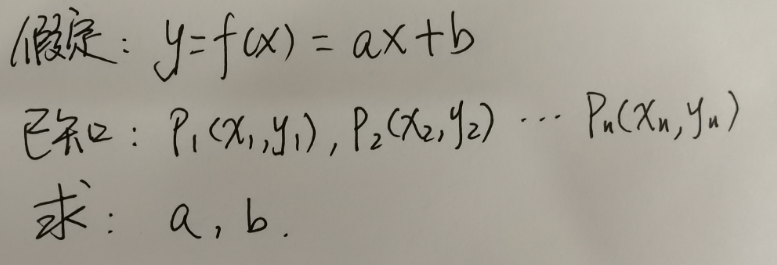 假定: y=f(x)=ax+b
已知: P₁(x₁,y₁), P₂(x₂,y₂) ··· Pₙ(xₙ,yₙ)
求: a, b.